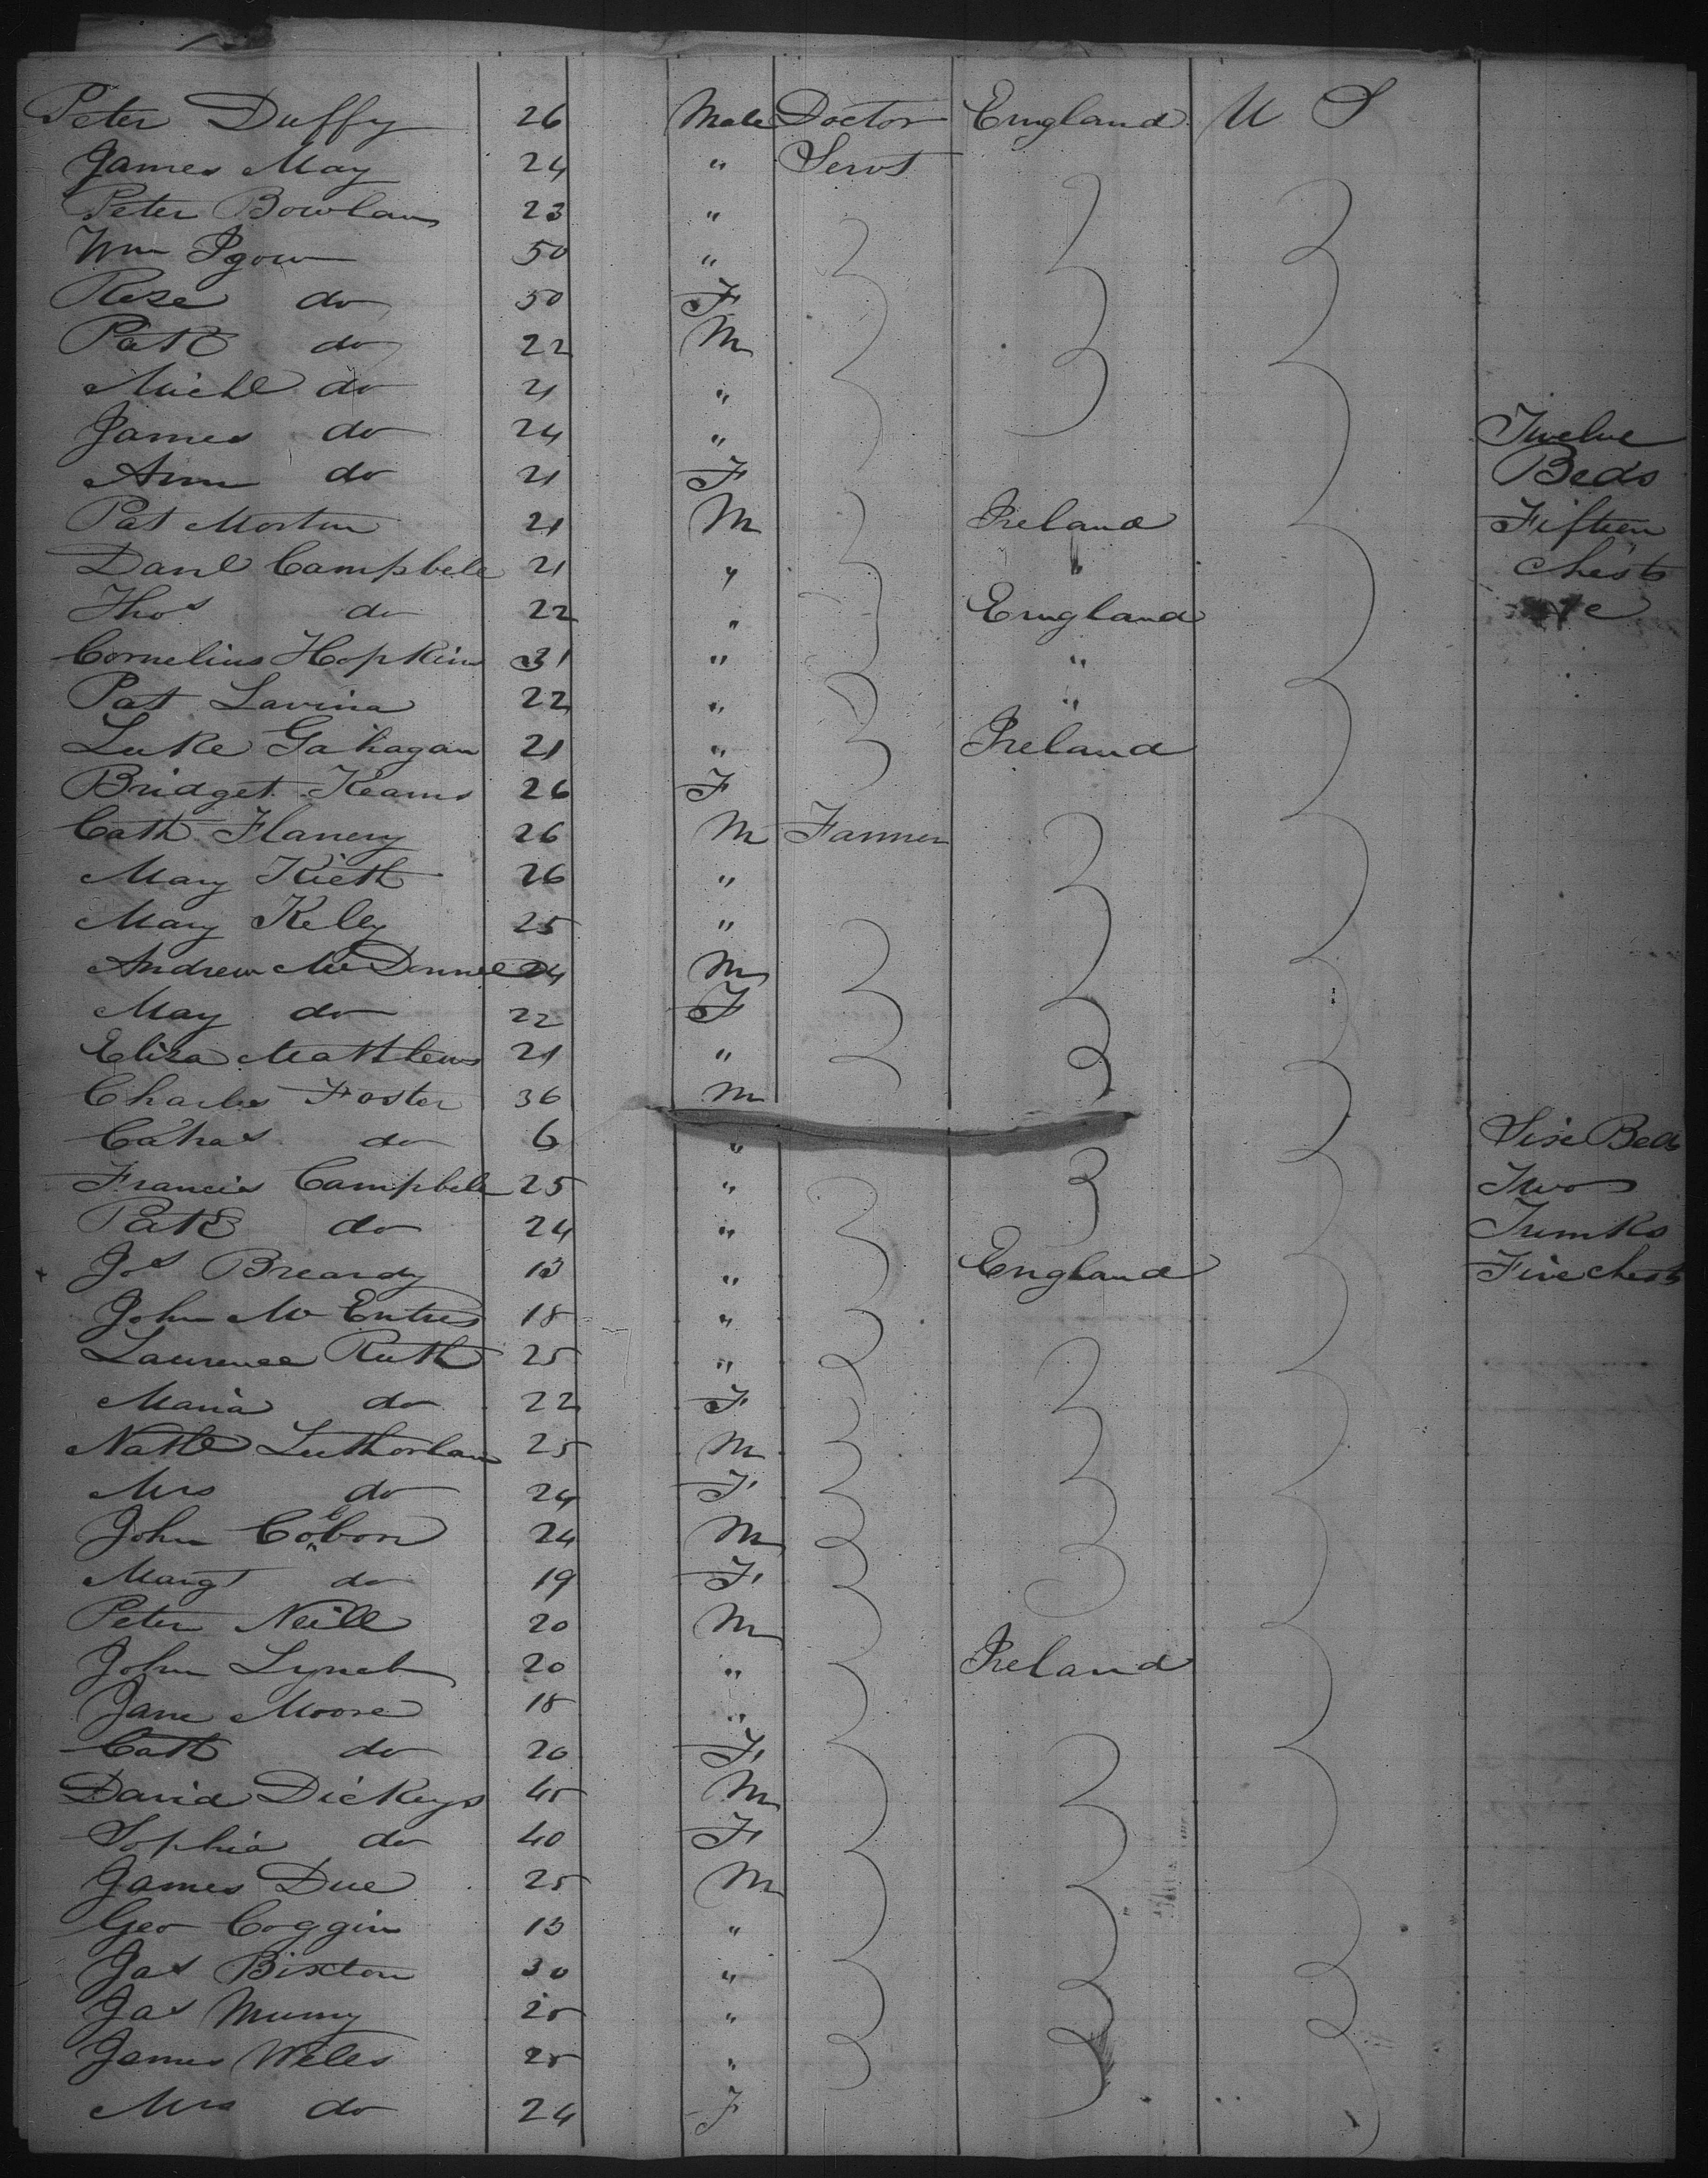 Peter Duffy 26 Male Doctor England U S
James May 24 " Servt
Peter Bowlan 23 "
Wm Igow 50 "
Rose do 50 F
Patk do 22 M
Michl do 21 "
James do 24 " Twelve
Ann do 21 F Beds
Pat Morton 21 M Ireland Fifteen
Danl Campbell 21 " Chests
Thos do 22 " England
Cornelius Hopkins 31 " "
Pat Lavina 22 " "
Luke Gahagan 21 " Ireland
Bridget Kearns 26 F
Cath Flanery 26 M Farmer
Mary Kieth 26 "
Mary Kelly 25 "
Andrew McDonnell 24 M
May do 22 F
Eliza Matthews 21 "
Charles Foster 36 M
do 6 " Six Beds
Francis Campbell 25 " Two
Patk do 24 " Trunks
Jos Breardy 13 " England Five Chests
John McEntres 18 "
Laurence Ruth 25 "
Maria do 22 F
Nathl 25 M
Mrs do 24 F
John 24 M
Margt do 19 F
Peter Neill 20 M
John Lynch 20 " Ireland
Jane Moore 18 "
Cath do 20 F
David Dickeys 45 M
Sophia do 40 F
James Due 25 M
Geo Coggin 13 "
Jas Bixton 30 "
Jas Murry 25 "
James Wells 25 "
Mrs do 24 F